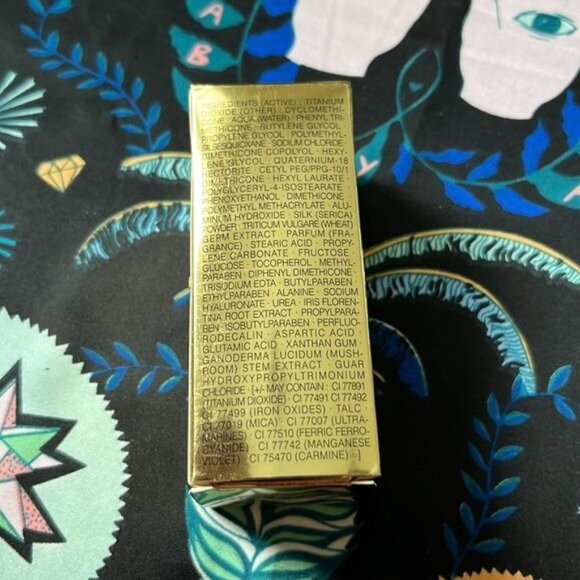 A
B
Y
INGREDIENTS (ACTIVE) · TITANIUM
DIOXIDE (OTHER) · CYCLOMETHI-
CONE · AQUA (WATER) · PHENYL TRI-
METHICONE · BUTYLENE GLYCOL ·
PROPYLENE GLYCOL · POLYMETHYL-
SILSESQUIOXANE · SODIUM CHLORIDE ·
DIMETHICONE COPOLYOL · HEXY-
LENE GLYCOL · QUATERNIUM-18
HECTORITE · CETYL PEG/PPG-10/1
DIMETHICONE · HEXYL LAURATE ·
POLYGLYCERYL-4-ISOSTEARATE ·
PHENOXYETHANOL · DIMETHICONE ·
POLYMETHYL METHACRYLATE · ALU-
MINUM HYDROXIDE · SILK (SERICA)
POWDER · TRITICUM VULGARE (WHEAT)
GERM EXTRACT · PARFUM (FRA-
GRANCE) · STEARIC ACID · PROPY-
LENE CARBONATE · FRUCTOSE ·
GLUCOSE · TOCOPHEROL · METHYL-
PARABEN · DIPHENYL DIMETHICONE ·
TRISODIUM EDTA · BUTYLPARABEN ·
ETHYLPARABEN · ALANINE · SODIUM
HYALURONATE · UREA · IRIS FLOREN-
TINA ROOT EXTRACT · PROPYLPARA-
BEN · ISOBUTYLPARABEN · PERFLUO-
RODECALIN · ASPARTIC ACID ·
GLUTAMIC ACID · XANTHAN GUM ·
GANODERMA LUCIDUM (MUSH-
ROOM) STEM EXTRACT · GUAR
HYDROXYPROPYLTRIMONIUM
CHLORIDE · [+/- MAY CONTAIN : CI 77891
(TITANIUM DIOXIDE) · CI 77491 CI 77492
CI 77499 (IRON OXIDES) · TALC ·
CI 77019 (MICA) · CI 77007 (ULTRA-
MARINES) · CI 77510 (FERRIC FERRO-
CYANIDE) · CI 77742 (MANGANESE
VIOLET) · CI 75470 (CARMINE) · ]